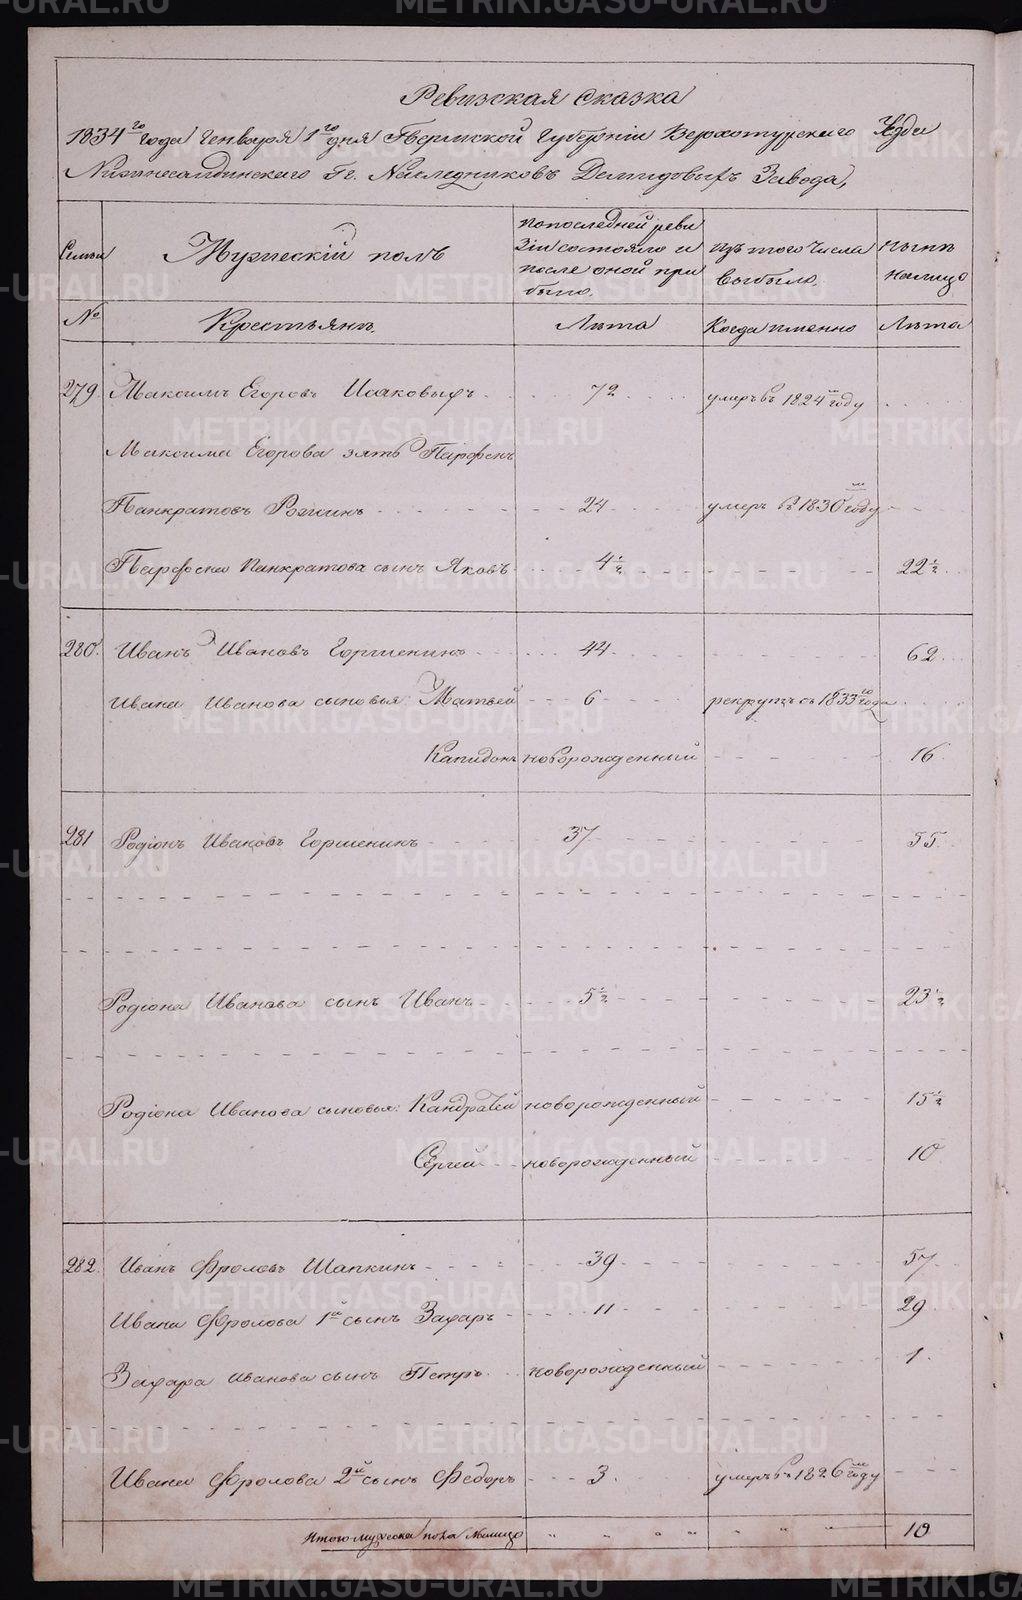 METRIKI.GASO-URAL.RU
Ревизская Сказка
1834го года Генваря 1го дня Пермской Губернiи Верхотурскаго Уѣзда
Нижнесалдинскаго Гг. Наследниковъ Демидовыхъ Завода,
Семьи
Мужескiй полъ
попоследней реви
зiи состояло и
после оной при
было.
изъ того числа
выбыло.
нынѣ
налицо
№
Крестьянъ
Лѣта
Когда именно
Лѣта
279. Максимъ Егоровъ Исаковыхъ 72 умеръ въ 1824м году
Максима Егорова зять Парфенъ
Панкратовъ 24 умеръ въ 1830м году
Парфена Панкратова сынъ Яковъ 4½ 22½
280. Иванъ Ивановъ Горшенинъ 44 62
Ивана Иванова сыновья: Матвей 6 рекрутъ съ 1833го года
Капидонъ новорожденный 16
281 Родiонъ Ивановъ Горшенинъ 37 55
Родiона Иванова сынъ Иванъ 5½ 23½
Родiона Иванова сыновья: Кандратей новорожденный 15½
Сергей новорожденный 10
282. Иванъ Фроловъ Шапкинъ 39 57
Ивана Фролова 1й сынъ Захаръ 11 29
Захара Иванова сынъ Петръ новорожденный 1
Ивана Фролова 2й сынъ Федоръ 3. умеръ въ 1826м году
Итого мужеска пола налицо " " " " " " " 10